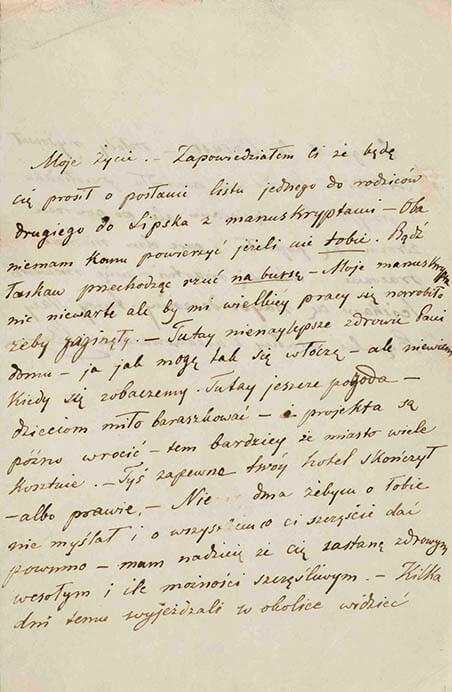 Moje życie. – Zapowiedziałem Ci że będę
cię prosił o posłanie listu jednego do rodziców
drugiego do Lipska z manuskryptami – Oba
niemam komu powierzyć jeżeli nie tobie. Bądź
łaskaw przechodząc rzuć na bursę – Moje manuskrypta
nic niewarte ale by mi wielkiej pracy się narobiło
żeby zaginęły. – Tutaj nienajlepsze zdrowie Pani
domu – ja jak mogę tak się włóczę – ale niewiem
kiedy się zobaczemy. Tutaj jeszcze pogoda –
dzieciom miło baraszkować – i projekta są
późno wrócić – tem bardziej że miasto wiele
kosztuie. – Tyś zapewne twój hotel skończył
– albo prawie. – Nie dma żebym o tobie
nie myślał i o wszystkiem co ci szczęście dać
powinno – mam nadzieję że cię zastanę zdrowym
wesołym i ile możności szczęśliwym. – Kilka
dni temu wyjeżdzali w okolice widzieć